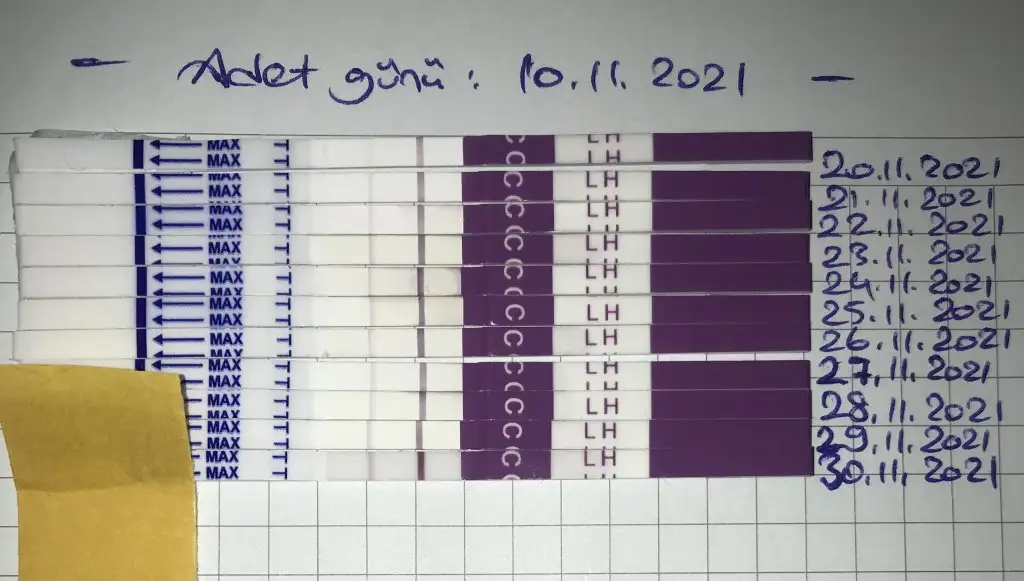 - Adet günü: 10.11.2021 -
MAX TT C LH
MAX C LH 20.11.2021
MAX
MAX T C LH 21.11.2021
MAX
MAX T C LH 22.11.2021
MAX T C LH 23.11.2021
MAX
MAX T C LH 24.11.2021
MAX
MAX T C LH 25.11.2021
MAX T C LH 26.11.2021
MAX
MAX T C LH 27.11.2021
MAX T C LH 28.11.2021
MAX
MAX T C LH 29.11.2021
MAX T C LH
MAX T C 30.11.2021